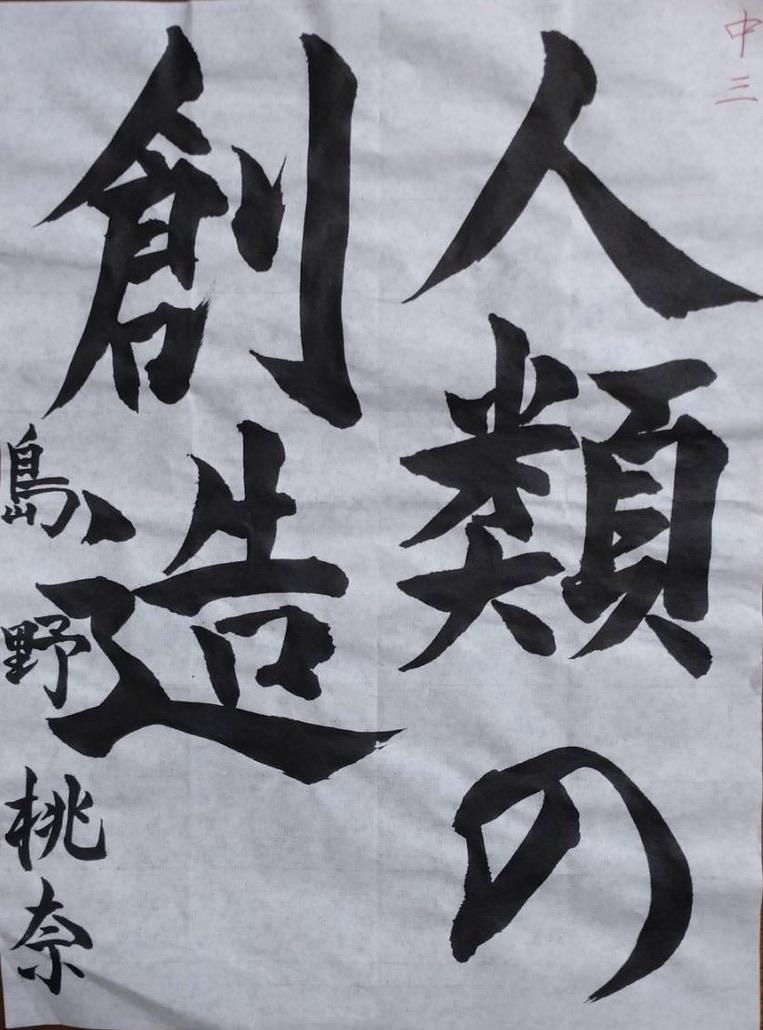 中三
人類の
創造
島野桃奈